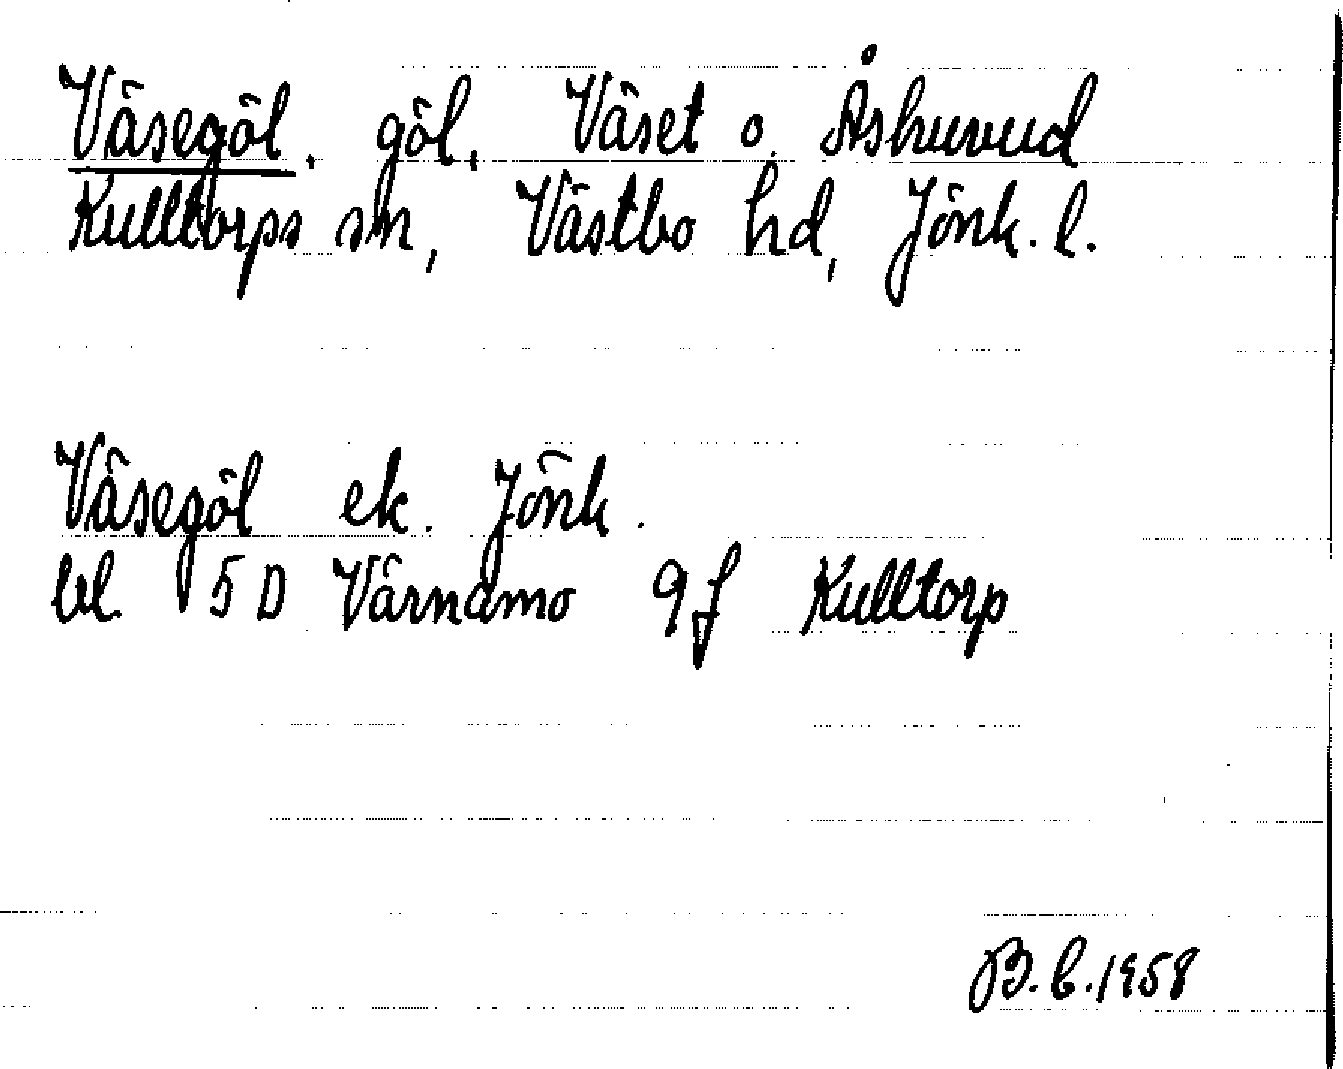 Väsegöl, göl, Väset o. Åshuvud
Kulltorps sn, Västbo hd, Jönk. l.
Väsegöl ek. Jönk.
bl. 5 D Värnamo 9 f Kulltorp
B. C. 1958